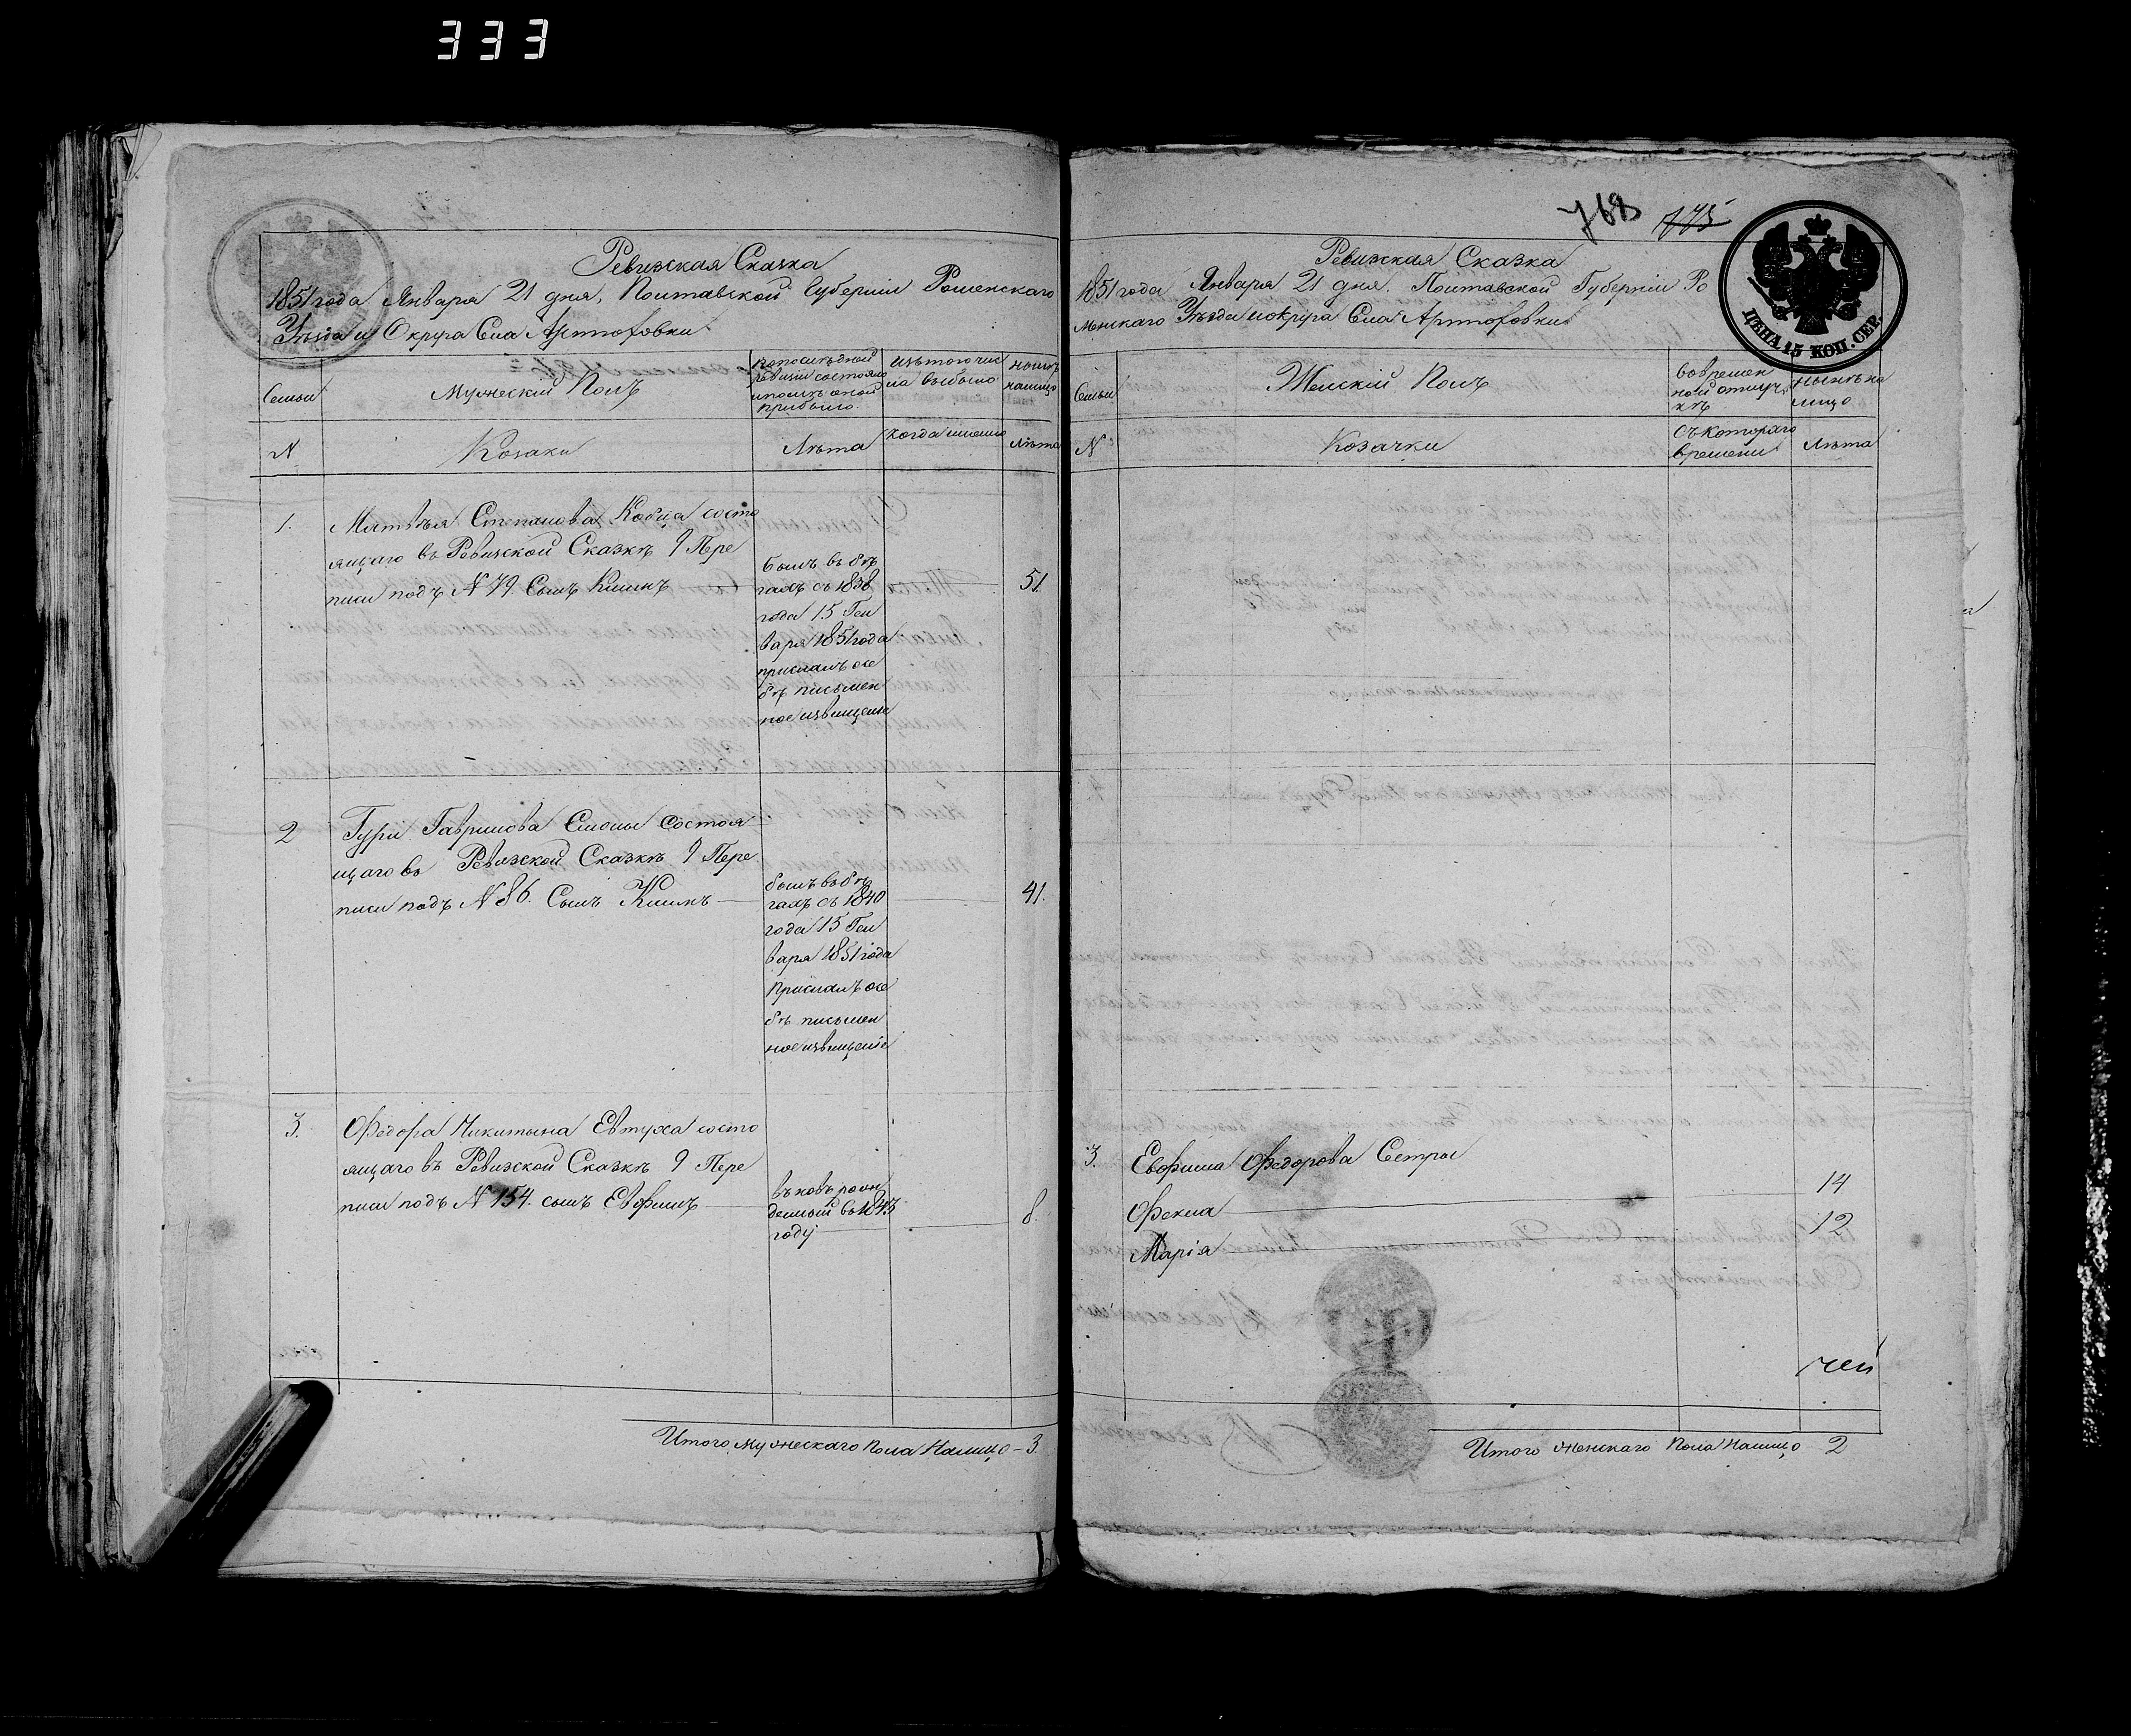 333
Ревизская Сказка
1851 года Января 21 дня, Полтавской Губернiи Роменскаго
Уѣзда и Округа Села Артюховки
Семьи
Мужескiй Полъ
По последной
ревизiи состояло
и послѣ оной
прибыло.
Изъ того чис
ла выбыло
Нынѣ
налицо
N
Козаки
Лѣта
Когда именно
Лѣта
1.
Матвѣя Степанова Кобца состо
ящаго въ Ревизской Сказкѣ 9 Пере
писи подъ N 79. Сынъ Климъ
былъ въ бѣ
гахъ съ 1838
года 15 Ген
варя 1851 года
прислалъ о се
бѣ письмен
ное извѣщенiе
51.
2
Гурiя Гаврилова состоя
щаго въ Ревизской Сказкѣ 9 Пере
писи подъ N 86. Сынъ Климъ
былъ въ бѣ
гахъ съ 1840
года 15 Ген
варя 1851 года
прислалъ о се
бѣ письмен
ное извѣщенiе
41.
3.
Федора Никитина Евтуха состо
ящаго въ Ревизской Сказкѣ 9 Пере
писи подъ N 154. сынъ Евфимъ
въновь рож
денный въ 1843
году
8.
Итого мужескаго пола Налицо - 3
768 775
Ревизская Сказка
1851 года Января 21 дня. Полтавской Губернiи Ро
менскаго Уѣзда и округа Села Артюховки
ЦѢНА 15 КОП. СЕР.
Семьи
Женскiй Полъ
Во времен
ной отлуч
кѣ
Нынѣ на
лицо
N
Козачки
Съ котораго
времени
Лѣта
3.
Евфима Федорова Сестры
Фекла
14
Марiя
12
чей
Итого женскаго пола Налицо 2